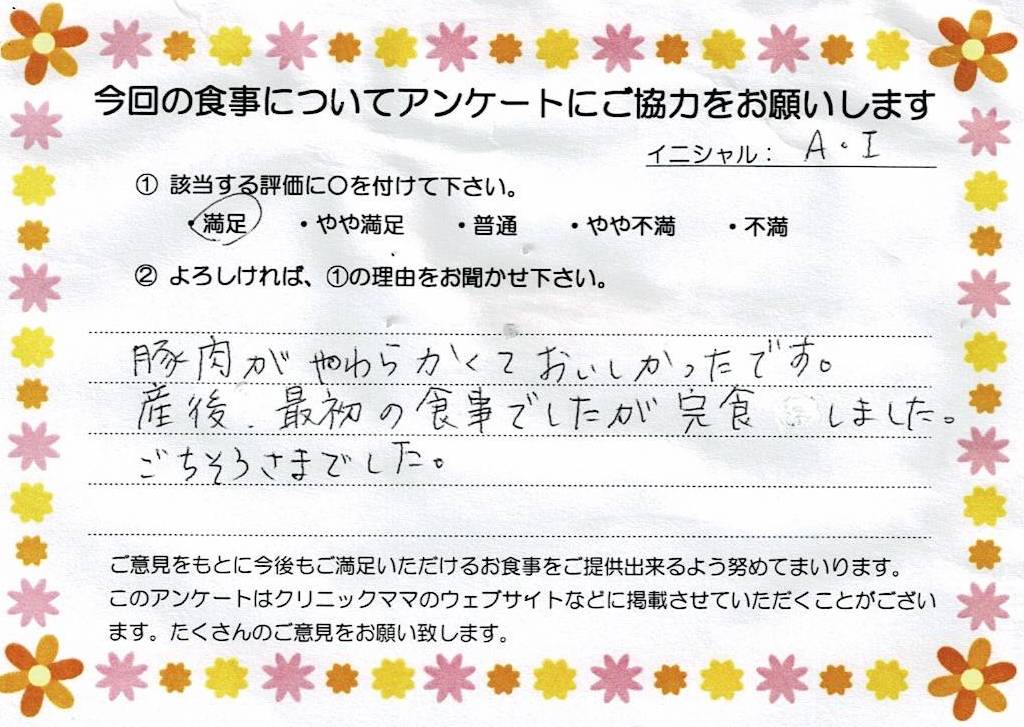 今回の食事についてアンケートにご協力をお願いします
イニシャル： A・I
① 該当する評価に〇を付けて下さい。
・満足 ・やや満足 ・普通 ・やや不満 ・不満
② よろしければ、①の理由をお聞かせ下さい。
豚肉がやわらかくておいしかったです。
産後、最初の食事でしたが完食しました。
ごちそうさまでした。
ご意見をもとに今後もご満足いただけるお食事をご提供出来るよう努めてまいります。
このアンケートはクリニックママのウェブサイトなどに掲載させていただくことがござい
ます。たくさんのご意見をお願い致します。